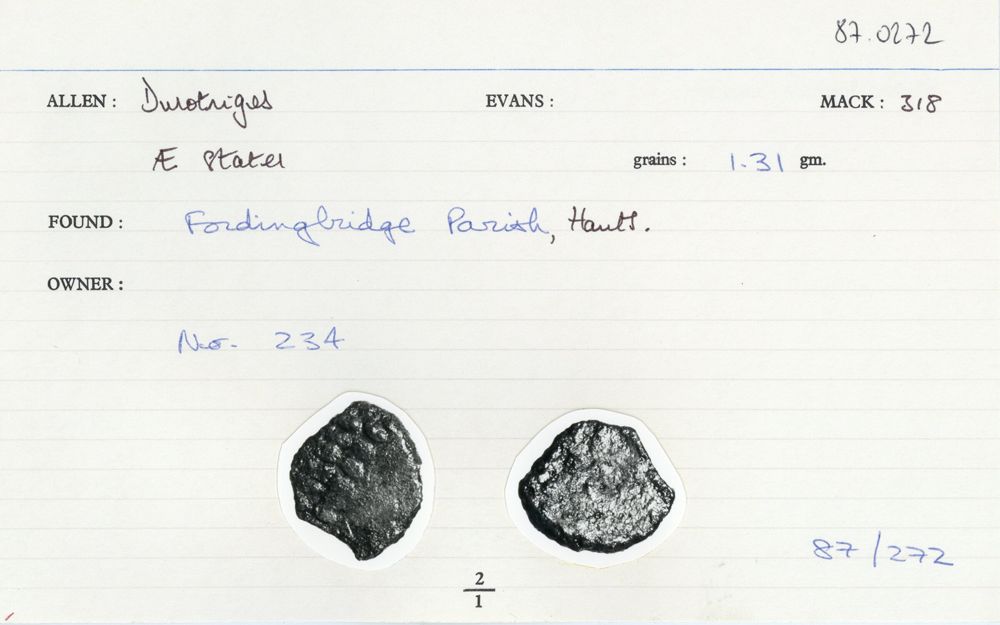 87.0272
ALLEN: Durotriges EVANS: MACK: 318
Æ Stater grains: 1.31 gm.
FOUND: Fordingbridge Parish, Hants.
OWNER:
No. 234
87/272
2
1